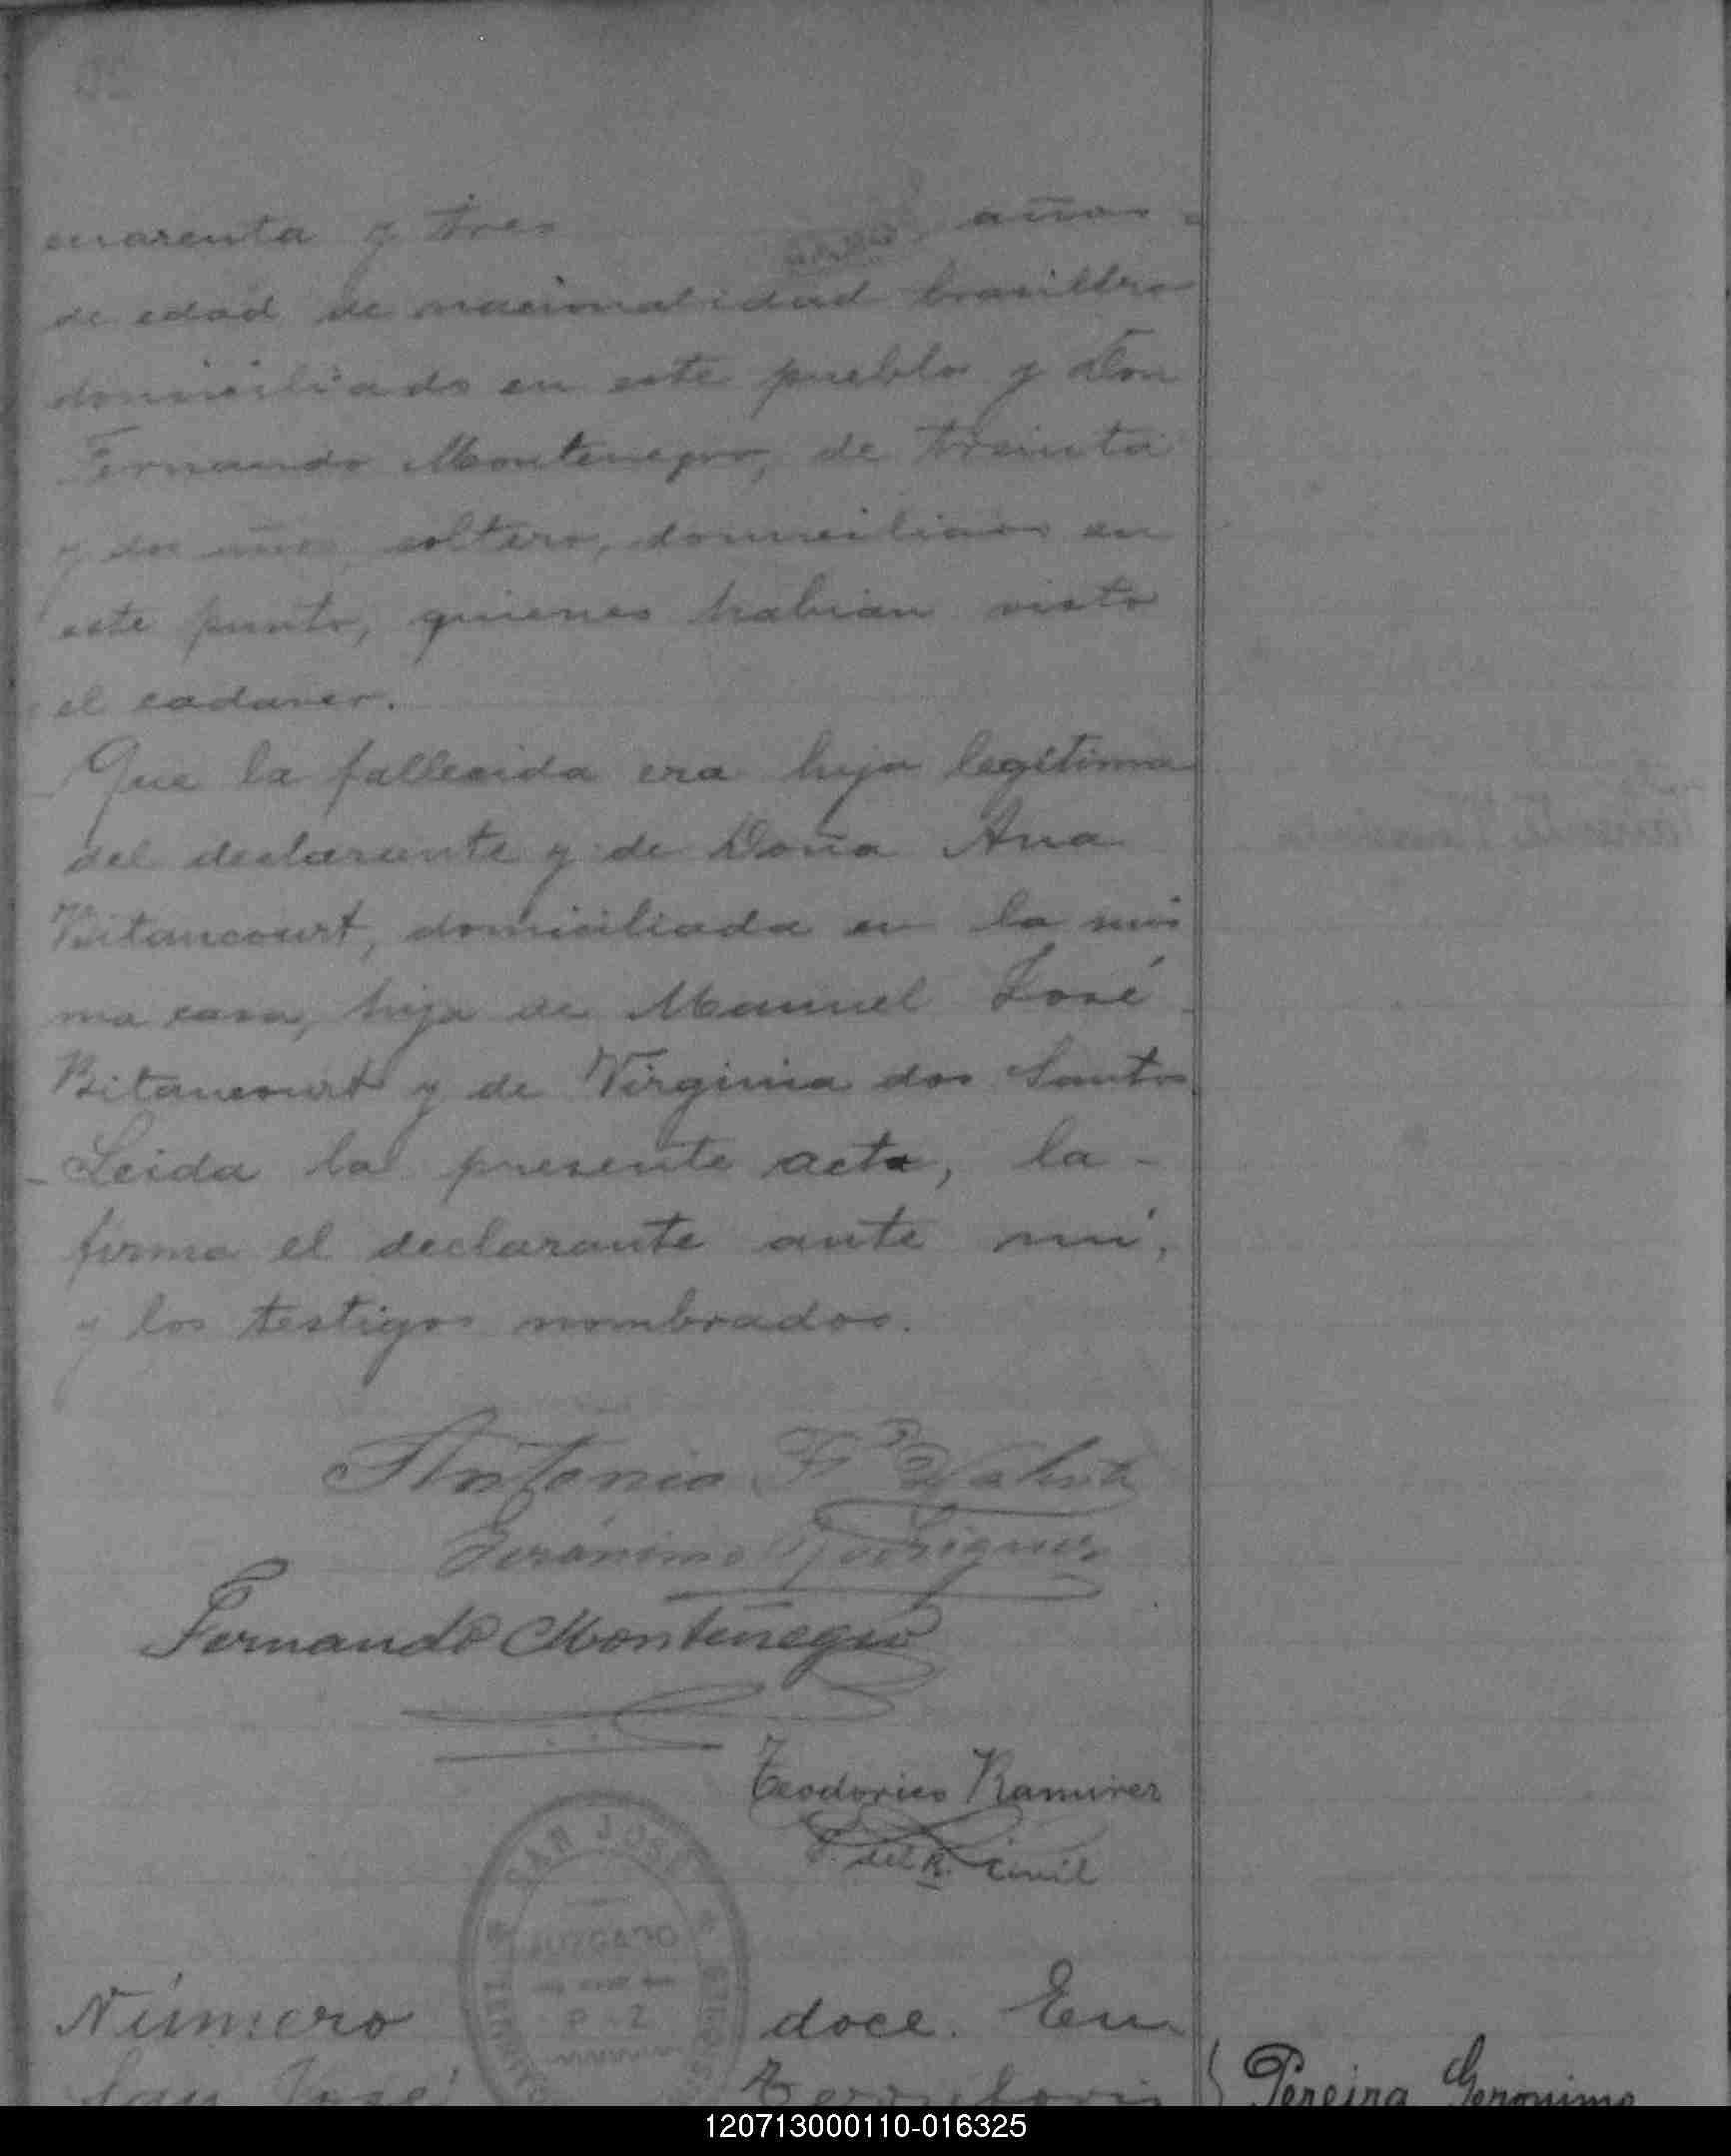 cuarenta y tres años
de edad de nacionalidad brasilero
domiciliado en este pueblo y Don
Fernando Montenegro, de treinta
y dos años soltero, domiciliado en
este punto, quienes habian visto
el cadaver.
Que la fallecida era hija legítima
del declarante y de Doña Ana
Bitancourt, domiciliada en la mis
ma casa, hija de Manuel José
Bitancourt y de Virginia dos Santos
Leida la presente acta, la
firma el declarante ante mi,
y los testigos nombrados.
Antonio
Gerónimo Rodriguez
Fernando Montenegro
Teodorico Ramirez
del R. Civil
SAN JOSE
JUZGADO
Número doce. En
San José
Pereira Geronimo
120713000110-016325